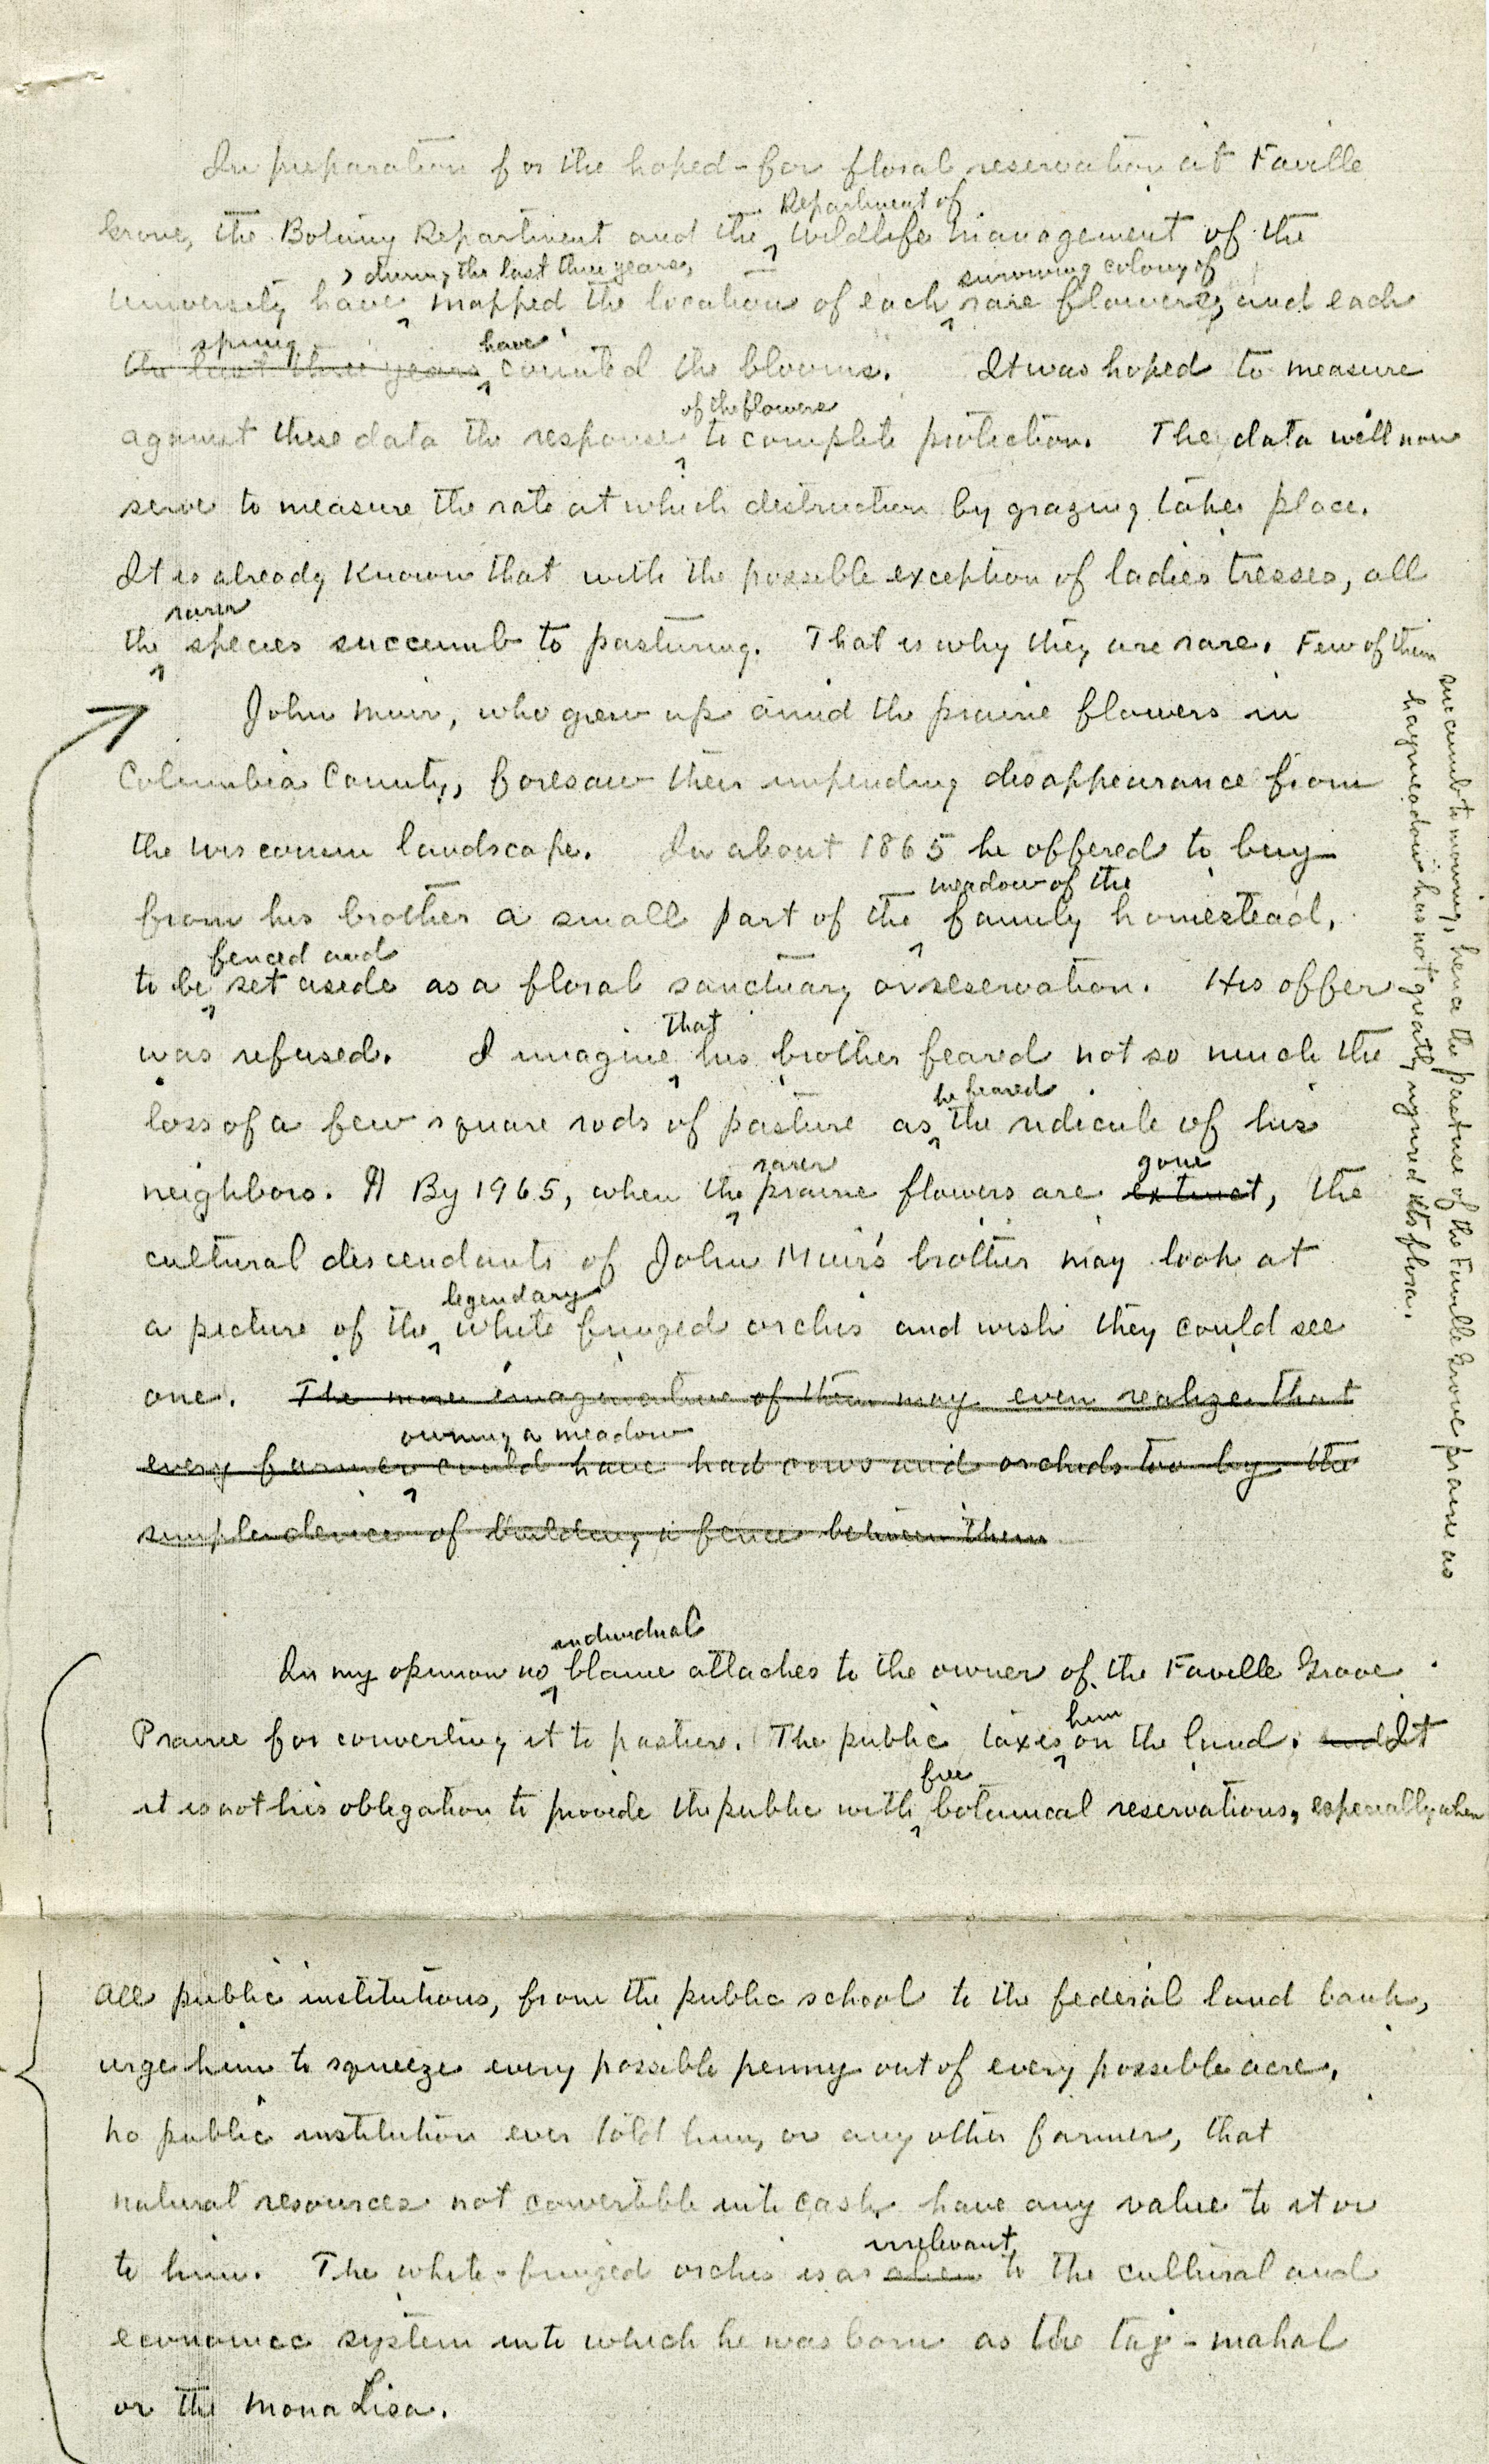 In preparation for the hoped-for floral reservation at Faville
Department of
Grove, the Botany Department and the Wildlife Management of the
, during the last three years, surviving colony of
University have mapped the location of each rare flower, and each
spring have
the last three years counted the blooms. It was hoped to measure
of the flowers
against these data the response to complete protection. The data will now
serve to measure the rate at which destruction by grazing takes place.
It is already known that with the possible exception of ladies tresses, all
rarer
the species succumb to pasturing. That is why they are rare. Few of them
succumb to mowing, hence the pasture of the Faville Grove prairie as
haymeadow has not greatly injured its flora.
John Muir, who grew up amid the prairie flowers in
Columbia County, foresaw their impending disappearance from
the Wisconsin landscape. In about 1865 he offered to buy
meadow of the
from his brother a small part of the family homestead,
fenced and
to be set aside as a floral sanctuary or reservation. His offer
that
was refused. I imagine his brother feared not so much the
he feared
loss of a few square rods of pasture as the ridicule of his
rarer gone
neighbors. ¶ By 1965, when the prairie flowers are extinct, the
cultural descendants of John Muir's brother may look at
legendary
a picture of the white fringed orchis and wish they could see
one. The more imaginative of them may even realize that
owning a meadow
every farmer could have had cows and orchids too by the
simple device of building a fence between them
individual
In my opinion no blame attaches to the owner of the Faville Grove
him
Prairie for converting it to pasture. The public taxes on the land. and It
free
it is not his obligation to provide the public with botanical reservations, especially when
all public institutions, from the public school to the federal land bank,
urge him to squeeze every possible penny out of every possible acre.
No public institution ever told him, or any other farmer, that
natural resources not convertible into cash have any value to it or
irrelevant
to him. The white-fringed orchis is as alien to the cultural and
economic system into which he was born as the taj-mahal
or the Mona Lisa.